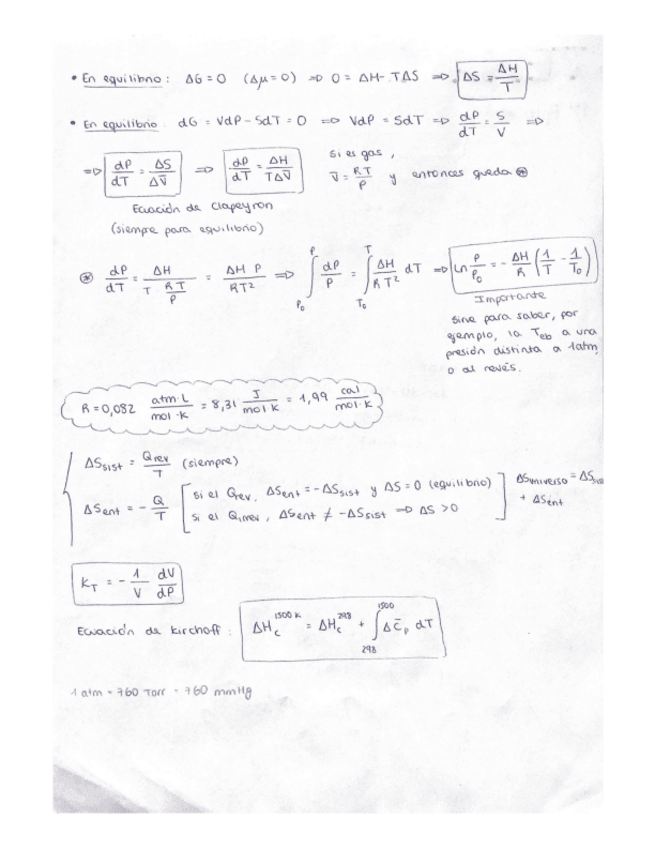 • En equilibrio: ΔG = 0 (Δμ = 0) ⇒ 0 = ΔH - TΔS ⇒ ΔS = ΔH/T
• En equilibrio: dG = VdP - SdT = 0 ⇒ VdP = SdT ⇒ dP/dT = S/V ⇒
⇒ dP/dT = ΔS/ΔV̄ ⇒ dP/dT = ΔH/(TΔV̄) si es gas,
V̄ = RT/P y entonces queda ⊛
Ecuación de Clapeyron
(siempre para equilibrio)
⊛ dP/dT = ΔH/(T · RT/P) = ΔH P/RT² ⇒ ∫_{P₀}^{P} dP/P = ∫_{T₀}^{T} ΔH/RT² dT ⇒ Ln P/P₀ = - ΔH/R (1/T - 1/T₀)
Importante
sirve para saber, por
ejemplo, la Teb a una
presión distinta a 1atm,
o al revés.
R = 0,082 atm·L/mol·K = 8,31 J/mol K = 1,99 cal/mol·K
ΔSsist = Qrev/T (siempre)
ΔSent = - Q/T [si el Qrev, ΔSent = -ΔSsist y ΔS = 0 (equilibrio)
si el Qirrev, ΔSent ≠ -ΔSsist ⇒ ΔS > 0]
ΔSuniverso = ΔSsis
+ ΔSent
KT = - 1/V dV/dP
Ecuación de Kirchoff: ΔHc^{1500 K} = ΔHc^{298} + ∫_{298}^{1500} ΔC̄p dT
1 atm = 760 Torr = 760 mmHg